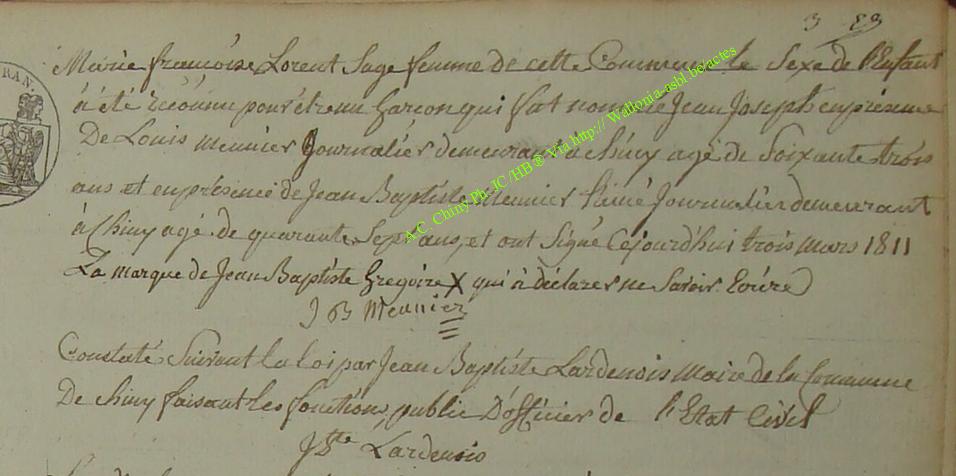 3 83
RAN.
Marie françoise Lorent Sage femme de cette Commune le Sexe de l'Enfant
à été reconnu pour être un Garçon qui fut nommé Jean Joseph en présence
De Louis meunier Journalier demeurant à Chiny agé de Soixante trois
ans et en présence de Jean Baptiste Meunier l'aîné Journalier demeurant
à Chiny agé de quarante Sept ans, et ont Signé Cejourd'hui trois mars 1811
La marque de Jean Baptiste Gregoire X qui à déclarer ne Savoir Ecrire
J B Meunier
Constaté Suivant la loi par Jean Baptiste Lardenois Maire de la Commune
De Chiny faisant les fonctions public D'officier de l'Etat Civil
J Bte Lardenois
A.C. Chiny Ph. JC /HB ® Via http:// Wallonia-asbl.be/actes